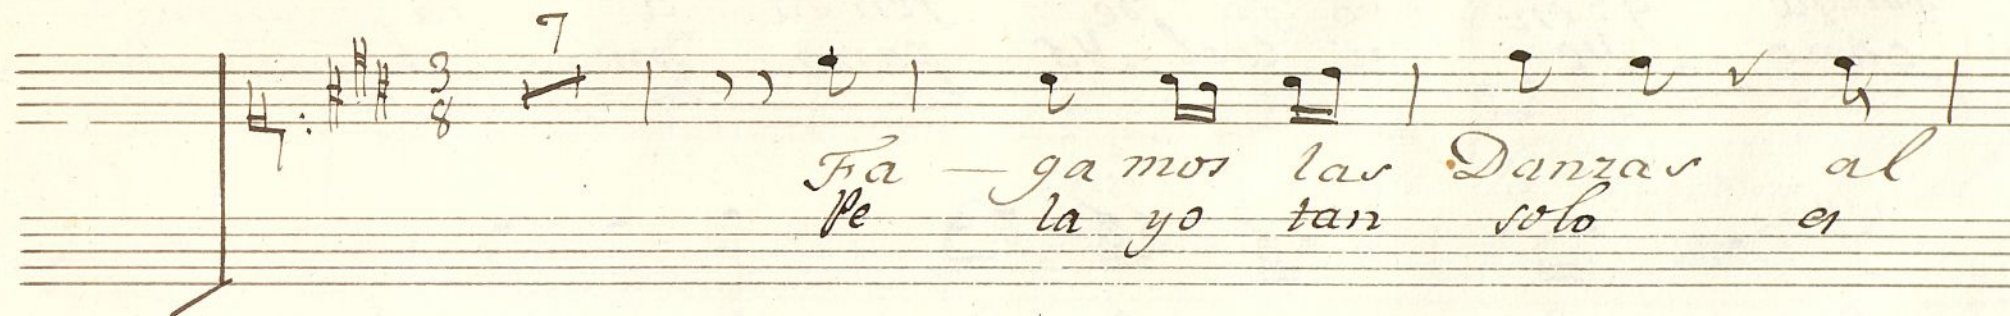 7
3
8
Fa — ga mos las Danzas al
Pe la yo tan solo es